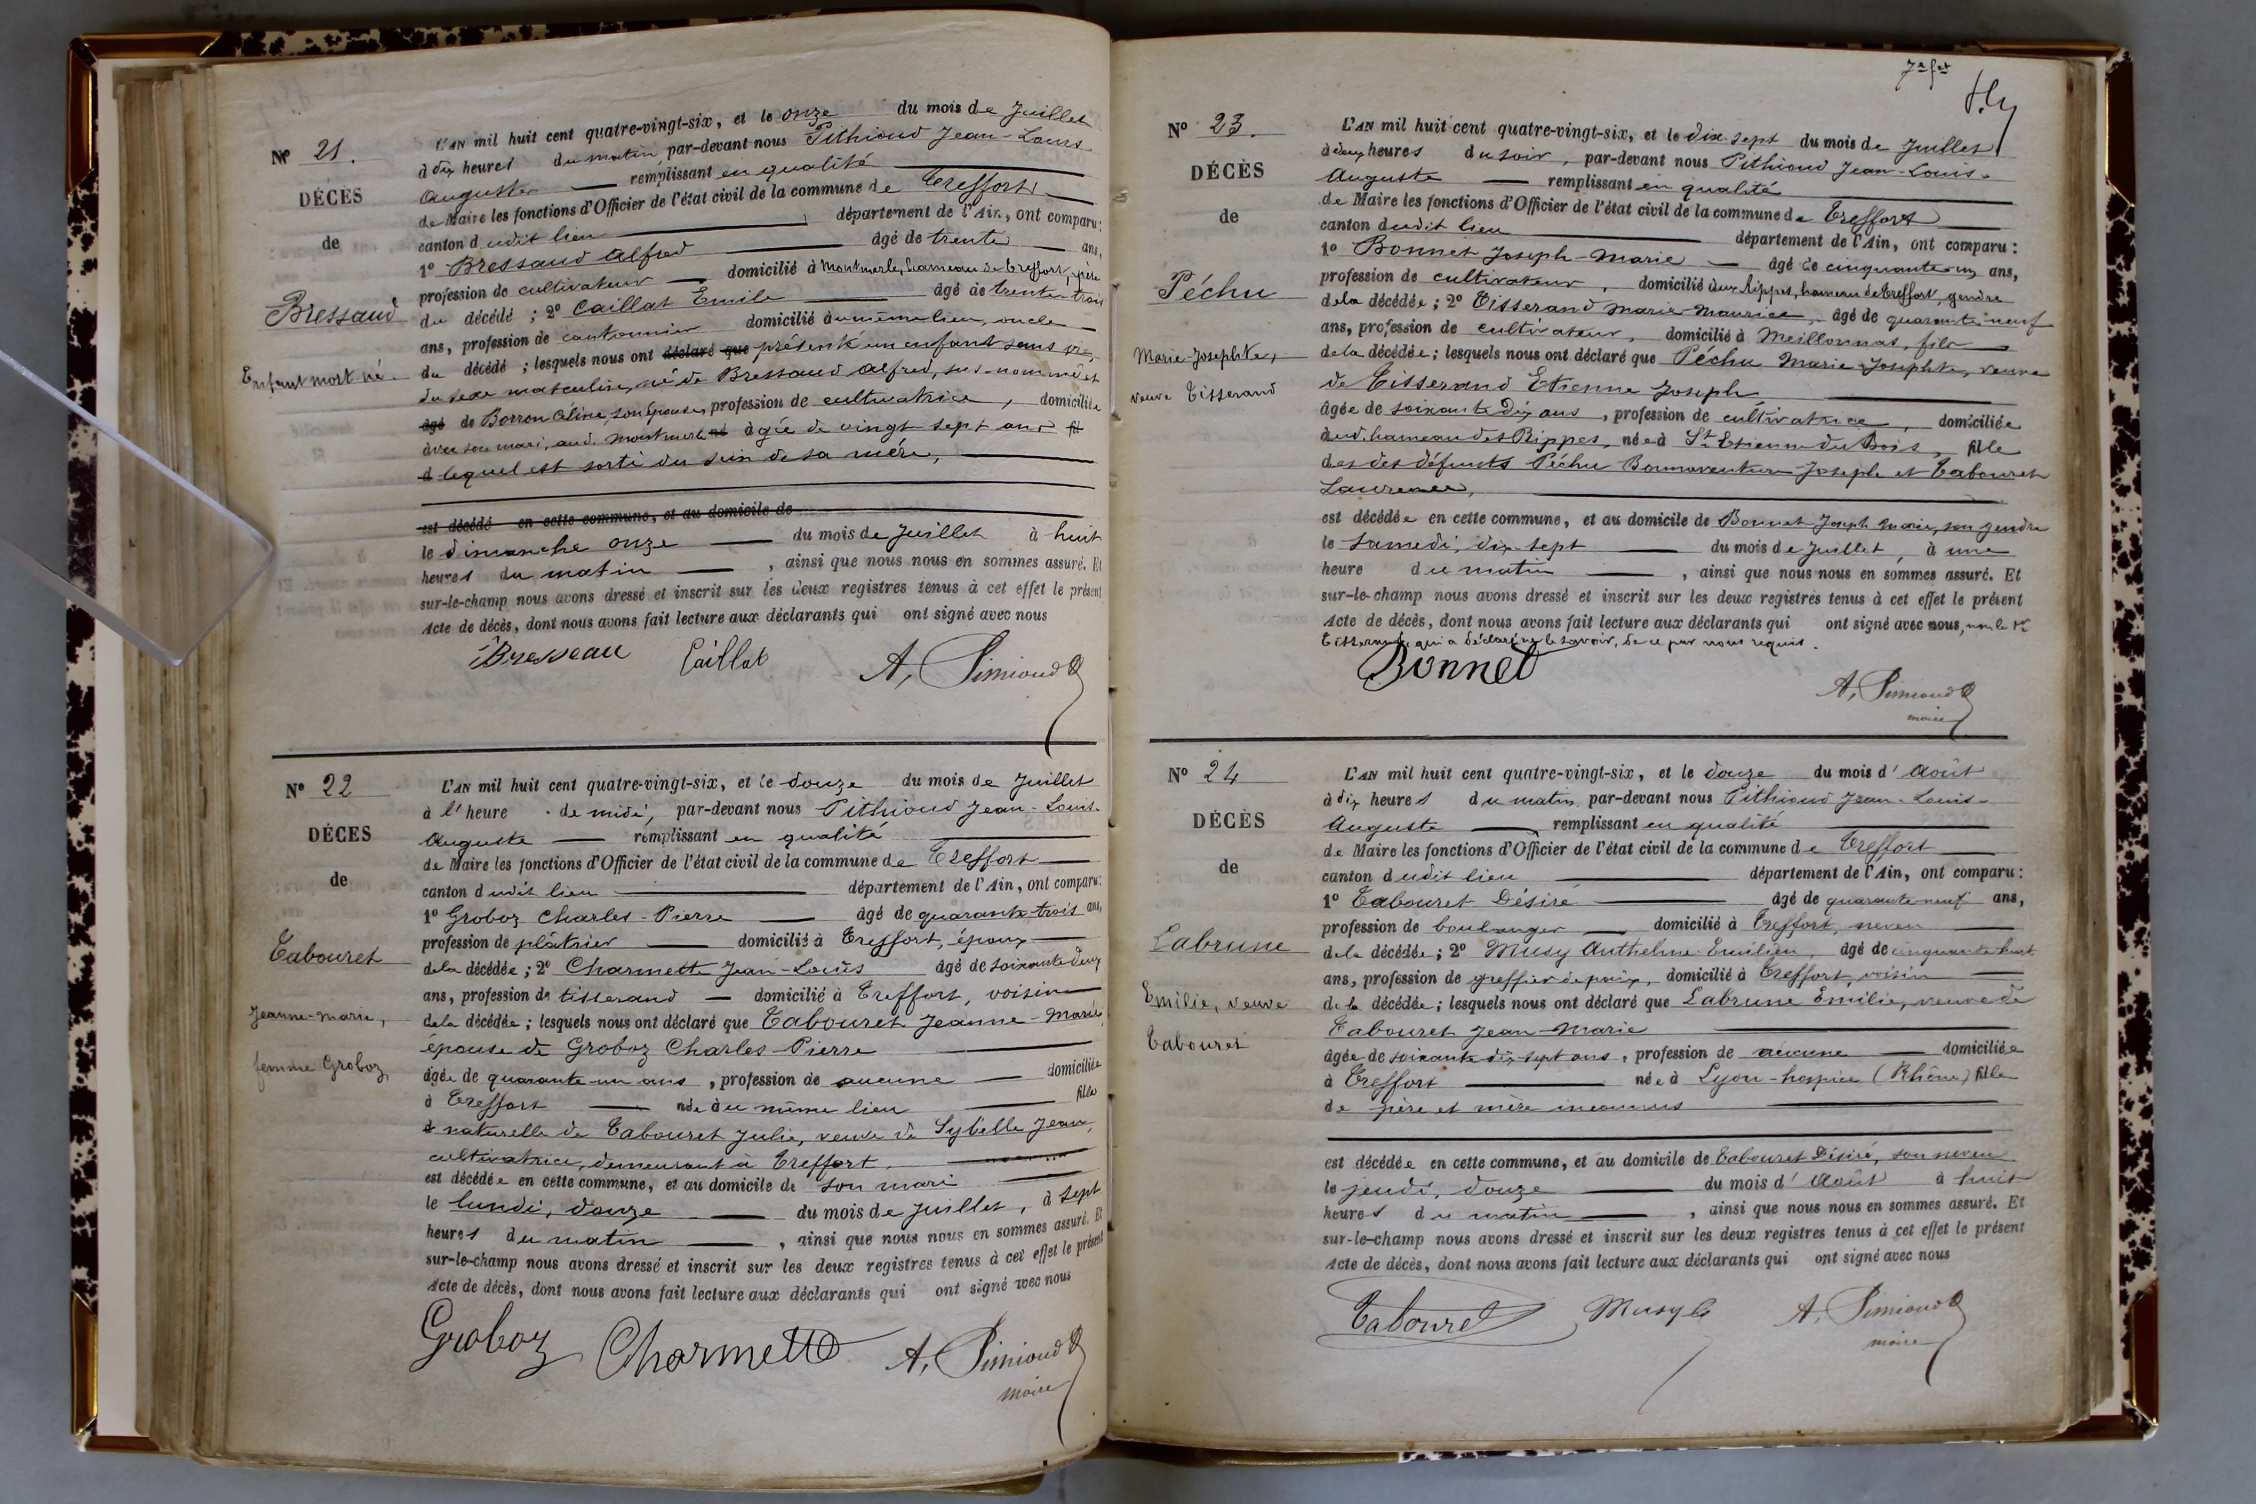 Nº 21.
DÉCÈS
de
Bressaud
Enfant mort né.
L'AN mil huit cent quatre-vingt-six, et le onze du mois de Juillet
à dix heures du matin, par-devant nous Pithioud Jean-Louis-
Auguste remplissant en qualité
de Maire les fonctions d'Officier de l'état civil de la commune de Treffort
canton dudit lieu département de l'Ain, ont comparu:
1º Bressaud Alfred âgé de trente ans,
profession de cultivateur domicilié à Montmerle, hameau de Treffort, père
du décédé ; 2º Caillat Emile âgé de trente-trois
ans, profession de cantonnier domicilié au même lieu, oncle
du décédé ; lesquels nous ont déclaré que présenté un enfant sans vie,
du sexe masculin, né de Bressaud Alfred, sus-nommé et
âgé de Borron Céline, son épouse, profession de cultivatrice, domiciliée
avec son mari, aud. Montmerle né âgée de vingt sept ans fil
d lequel est sorti du sein de sa mère,
est décédé en cette commune, et au domicile de
le dimanche onze du mois de Juillet à huit
heures du matin, ainsi que nous nous en sommes assuré. Et
sur-le-champ nous avons dressé et inscrit sur les deux registres tenus à cet effet le présent
Acte de décès, dont nous avons fait lecture aux déclarants qui ont signé avec nous
Bresseau Caillat A. Pithioud
Nº 22
DÉCES
de
Tabouret
Jeanne-Marie,
femme Groboz
L'AN mil huit cent quatre-vingt-six, et le douze du mois de Juillet
à l'heure de midi, par-devant nous Pithioud Jean-Louis-
Auguste remplissant en qualité
de Maire les fonctions d'Officier de l'état civil de la commune de Treffort
canton dudit lieu département de l'Ain, ont comparu:
1º Groboz Charles-Pierre âgé de quarante-trois ans,
profession de plâtrier domicilié à Treffort, époux
de la décédée ; 2º Charmette Jean-Louis âgé de soixante deux
ans, profession de tisserand domicilié à Treffort, voisin
de la décédée ; lesquels nous ont déclaré que Tabouret Jeanne-Marie,
épouse de Groboz Charles-Pierre
âgée de quarante-un ans, profession de aucune domiciliée
à Treffort née au même lieu fille
d naturelle de Tabouret Julie, veuve de Sybelle Jean,
cultivatrice, demeurant à Treffort.
est décédée en cette commune, et au domicile de son mari
le lundi, douze du mois de Juillet, à sept
heures du matin, ainsi que nous nous en sommes assuré. Et
sur-le-champ nous avons dressé et inscrit sur les deux registres tenus à cet effet le présent
Acte de décès, dont nous avons fait lecture aux déclarants qui ont signé avec nous
Groboz Charmette A. Pithioud
maire
Nº 23.
DÉCÈS
de
Péchu
Marie-Josephte,
veuve Tisserand
L'AN mil huit cent quatre-vingt-six, et le dix-sept du mois de Juillet
à deux heures du soir, par-devant nous Pithioud Jean-Louis-
Auguste remplissant en qualité
de Maire les fonctions d'Officier de l'état civil de la commune de Treffort
canton dudit lieu département de l'Ain, ont comparu:
1º Bonnet Joseph-Marie âgé de cinquante-un ans,
profession de cultivateur, domicilié aux Rippes, hameau de Treffort, gendre
de la décédée ; 2º Tisserand Marie-Maurice, âgé de quarante-neuf
ans, profession de cultivateur, domicilié à Meillonnas, fils
de la décédée ; lesquels nous ont déclaré que Péchu Marie-Josephte, veuve
de Tisserand Etienne Joseph
âgée de soixante-dix ans, profession de cultivatrice, domiciliée
aud. hameau des Rippes, née à St Etienne du Bois, fille
des des défunts Péchu Bonnaventure-Joseph et Tabouret
Laurence,
est décédée en cette commune, et au domicile de Bonnet Joseph Marie, son gendre
le samedi, dix-sept du mois de Juillet, à une
heure du matin, ainsi que nous nous en sommes assuré. Et
sur-le-champ nous avons dressé et inscrit sur les deux registres tenus à cet effet le présent
Acte de décès, dont nous avons fait lecture aux déclarants qui ont signé avec nous, non le Sr
Tisserand, qui a déclaré ne le savoir, de ce par nous requis.
Bonnet
A. Pithioud
maire
Nº 24
DÉCÈS
de
Labrune
Emilie, veuve
Tabouret
L'AN mil huit cent quatre-vingt-six, et le douze du mois d'Août
à dix heures du matin, par-devant nous Pithioud Jean-Louis-
Auguste remplissant en qualité
de Maire les fonctions d'Officier de l'état civil de la commune de Treffort
canton dudit lieu département de l'Ain, ont comparu:
1º Tabouret Désiré âgé de quarante-neuf ans,
profession de boulanger domicilié à Treffort, neveu
de la décédée ; 2º Musy Anthelme Emilien, âgé de cinquante-huit
ans, profession de greffier de paix, domicilié à Treffort, voisin
de la décédée ; lesquels nous ont déclaré que Labrune Emilie, veuve de
Tabouret Jean-Marie
âgée de soixante-dix-sept ans, profession de aucune domiciliée
à Treffort née à Lyon-hospice (Rhône) fille
de père et mère inconnus
est décédée en cette commune, et au domicile de Tabouret Désiré, son neveu
le jeudi, douze du mois d'Août à huit
heures du matin, ainsi que nous nous en sommes assuré. Et
sur-le-champ nous avons dressé et inscrit sur les deux registres tenus à cet effet le présent
Acte de décès, dont nous avons fait lecture aux déclarants qui ont signé avec nous
Tabouret Musy A. Pithioud
maire